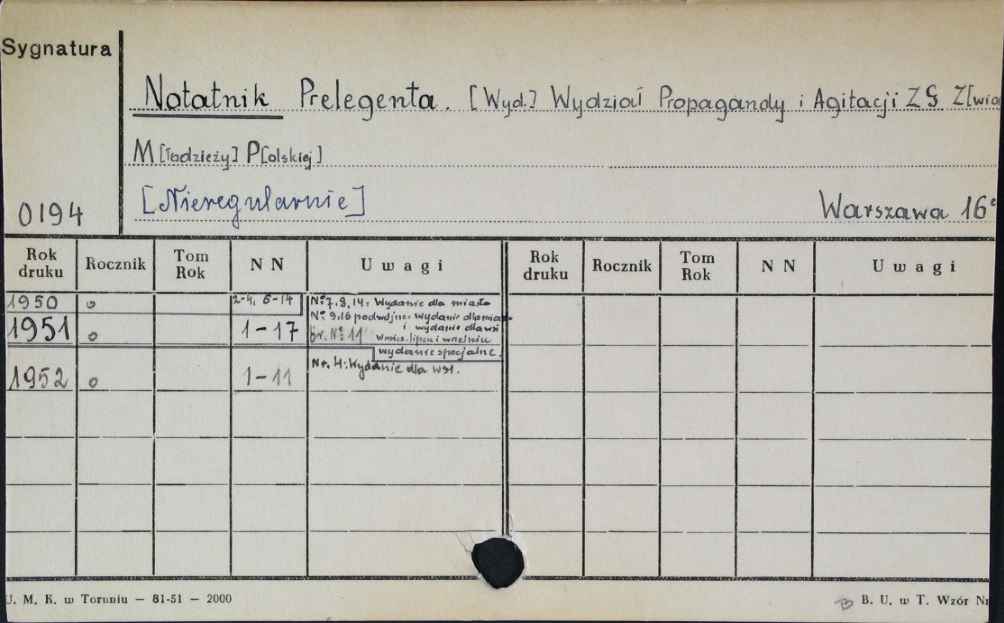 Sygnatura
Notatnik Prelegenta. [Wyd.] Wydział Propagandy i Agitacji ZG Z[wią
M[łodzieży] P[olskiej]
[Nieregularnie]
0194
Warszawa 16°
Rok druku Rocznik Tom Rok N N Uwagi Rok druku Rocznik Tom Rok N N Uwagi
1950 o 2-4, 6-14 Nº 7, 8, 14: Wydanie dla miasta
1951 o 1-17 Nº 9,16 podwójne: wydanie dla miasta
i wydanie dla wsi
br. Nº 11 w mies. lipcu i wrześniu
wydanie specjalne.
1952 o 1-11 Nr. 4: Wydanie dla wsi.
U. M. K. w Toruniu — 81-51 — 2000
B. U. w T. Wzór Nr